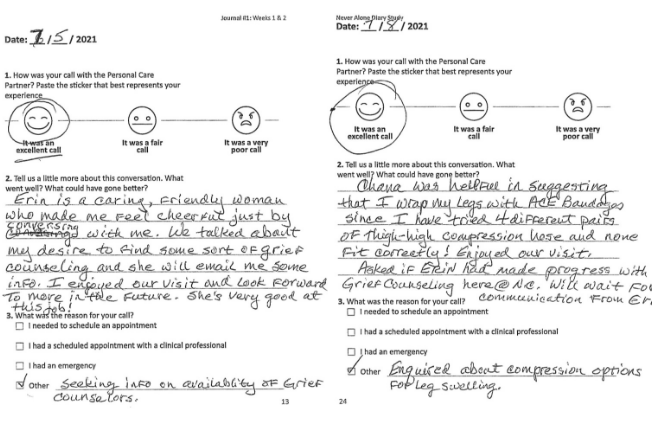 Journal #1: Weeks 1 & 2
Date: 7/5/2021
1. How was your call with the Personal Care
Partner? Paste the sticker that best represents your
experience
It was an
excellent call
It was a fair
call
It was a very
poor call
2. Tell us a little more about this conversation. What
went well? What could have gone better?
Erin is a caring, friendly woman
who made me feel cheerful just by
conversing
with me. We talked about
my desire to find some sort of grief
counseling and she will email me some
info. I enjoyed our visit and look forward
To more in the future. She's very good at
this job!
3. What was the reason for your call?
I needed to schedule an appointment
I had a scheduled appointment with a clinical professional
I had an emergency
Other Seeking info on availablity of Grief
counselors.
13
Never Alone Diary Study
Date: 7/8/2021
1. How was your call with the Personal Care
Partner? Paste the sticker that best represents your
experience
It was an
excellent call
It was a fair
call
It was a very
poor call
2. Tell us a little more about this conversation. What
went well? What could have gone better?
Ohana was helpful in suggesting
that I wrap my legs with ACE Bandages
since I have tried 4 different pairs
of thigh-high compression hose and none
fit correctly! Enjoyed our visit.
Asked if Erin had made progress with
Grief Counseling here @ N.C. Will wait for
communication from
3. What was the reason for your call?
I needed to schedule an appointment
I had a scheduled appointment with a clinical professional
I had an emergency
Other Enquired about compression options
For leg swelling.
24